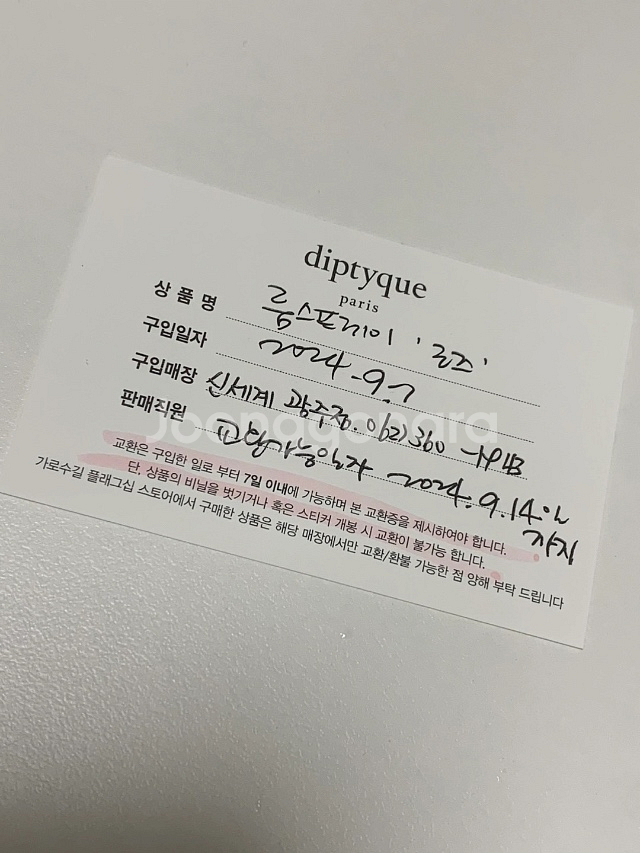 diptyque
paris
상 품 명 룸스프레이 '로즈'
구입일자 2024.9.7
구입매장 신세계 광주점. 062) 360
판매직원 교환가능일자 2024.9.14일
까지
Joonggonara
교환은 구입한 일로 부터 7일 이내에 가능하며 본 교환증을 제시하여야 합니다.
단, 상품의 비닐을 벗기거나 혹은 스티커 개봉 시 교환이 불가능 합니다.
가로수길 플래그십 스토어에서 구매한 상품은 해당 매장에서만 교환/환불 가능한 점 양해 부탁 드립니다